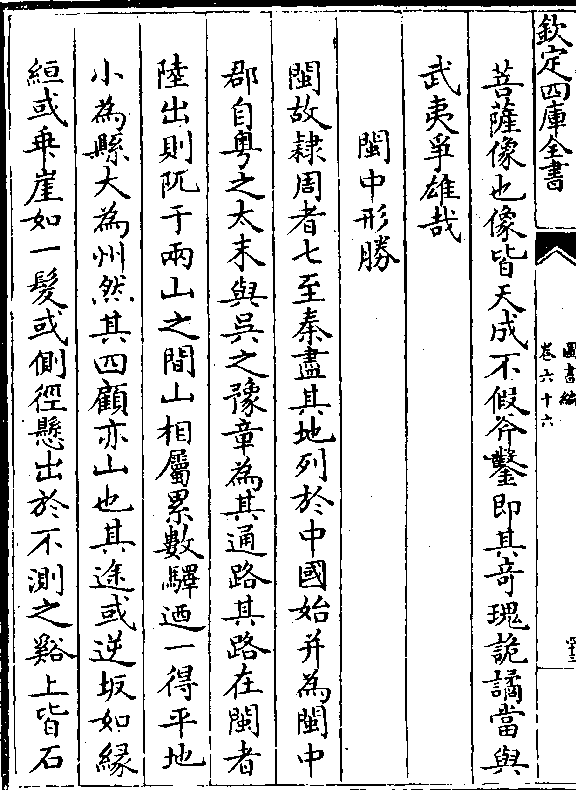 欽定四庫全書
圖書編
卷六十六
菩薩像也像皆天成不假斧鑿即其奇瑰詭譎當與
武夷爭雄哉
閩中形勝
閩故隷周者七至秦盡其地列於中國始并為閩中
郡自粤之太末與吳之豫章為其通路其路在閩者
陸出則阨于兩山之間山相屬累數驛廼一得平地
小為縣大為州然其四顧亦山也其途或逆坂如縁
絙或乗崖如一髪或側徑懸出於不測之谿上皆石